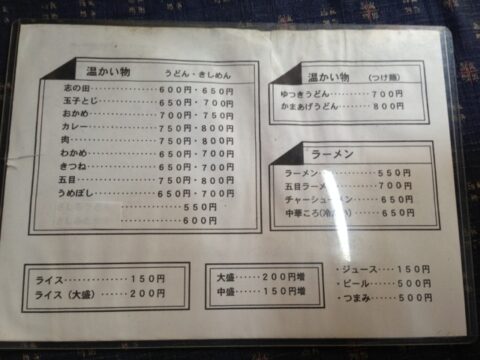 温かい物 うどん・きしめん
志の田‥‥‥‥‥‥600円・650円
玉子とじ‥‥‥‥‥650円・700円
おかめ‥‥‥‥‥‥700円・750円
カレー‥‥‥‥‥‥750円・800円
肉‥‥‥‥‥‥‥‥750円・800円
わかめ‥‥‥‥‥‥650円・700円
きつね‥‥‥‥‥‥650円・700円
五目‥‥‥‥‥‥‥750円・800円
うめぼし‥‥‥‥‥650円・700円
550円
600円
ライス‥‥‥‥‥150円
ライス(大盛)‥‥200円
温かい物 (つけ麺)
ゆつきうどん‥‥‥700円
かまあげうどん‥‥800円
ラーメン
ラーメン‥‥‥‥550円
五目ラーメン‥‥700円
チャーシューメン‥650円
中華ころ(冷たい)‥650円
大盛‥‥200円増
中盛‥‥150円増
・ジュース‥‥150円
・ビール‥‥‥500円
・つまみ‥‥‥500円